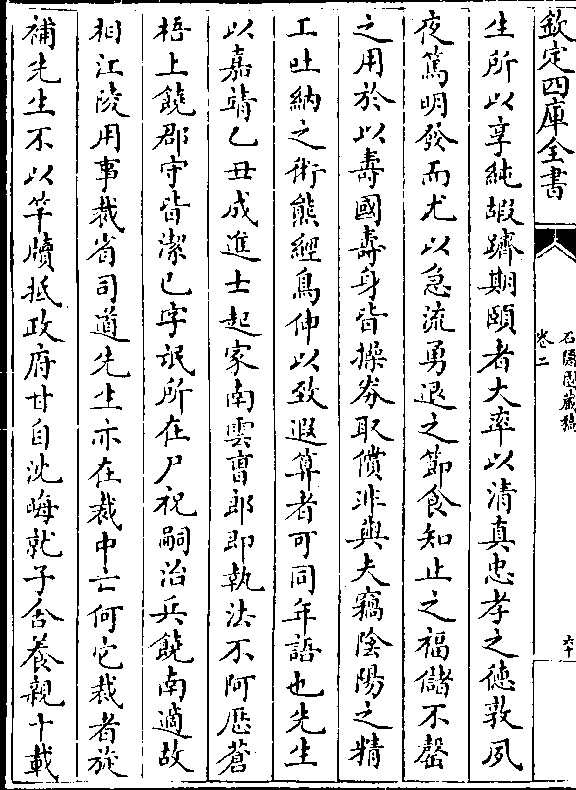 欽定四庫全書
石隱園藏稿
卷二
六十
生所以享純嘏躋期頤者大率以清真忠孝之徳敦夙
夜篤明發而尤以急流勇退之節食知止之福儲不罄
之用於以壽國壽身皆操券取償非與夫竊陰陽之精
工吐納之術熊經鳥伸以致遐算者可同年語也先生
以嘉靖乙丑成進士起家南雲曹郎即執法不阿歴蒼
梧上饒郡守皆潔已字氓所在尸祝嗣治兵饒南適故
相江陵用事裁省司道先生亦在裁中亡何它裁者旋
補先生不以竿牘抵政府甘自沈晦就子舍養親十載